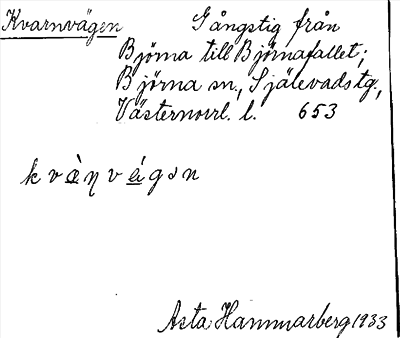 Kvarnvägen Gångstig från
Björna till Björnafallet;
Björna sn., Själevads tg.,
Västernorrl. l. 653
kvὰη vέgən
Asta Hammarberg 1933